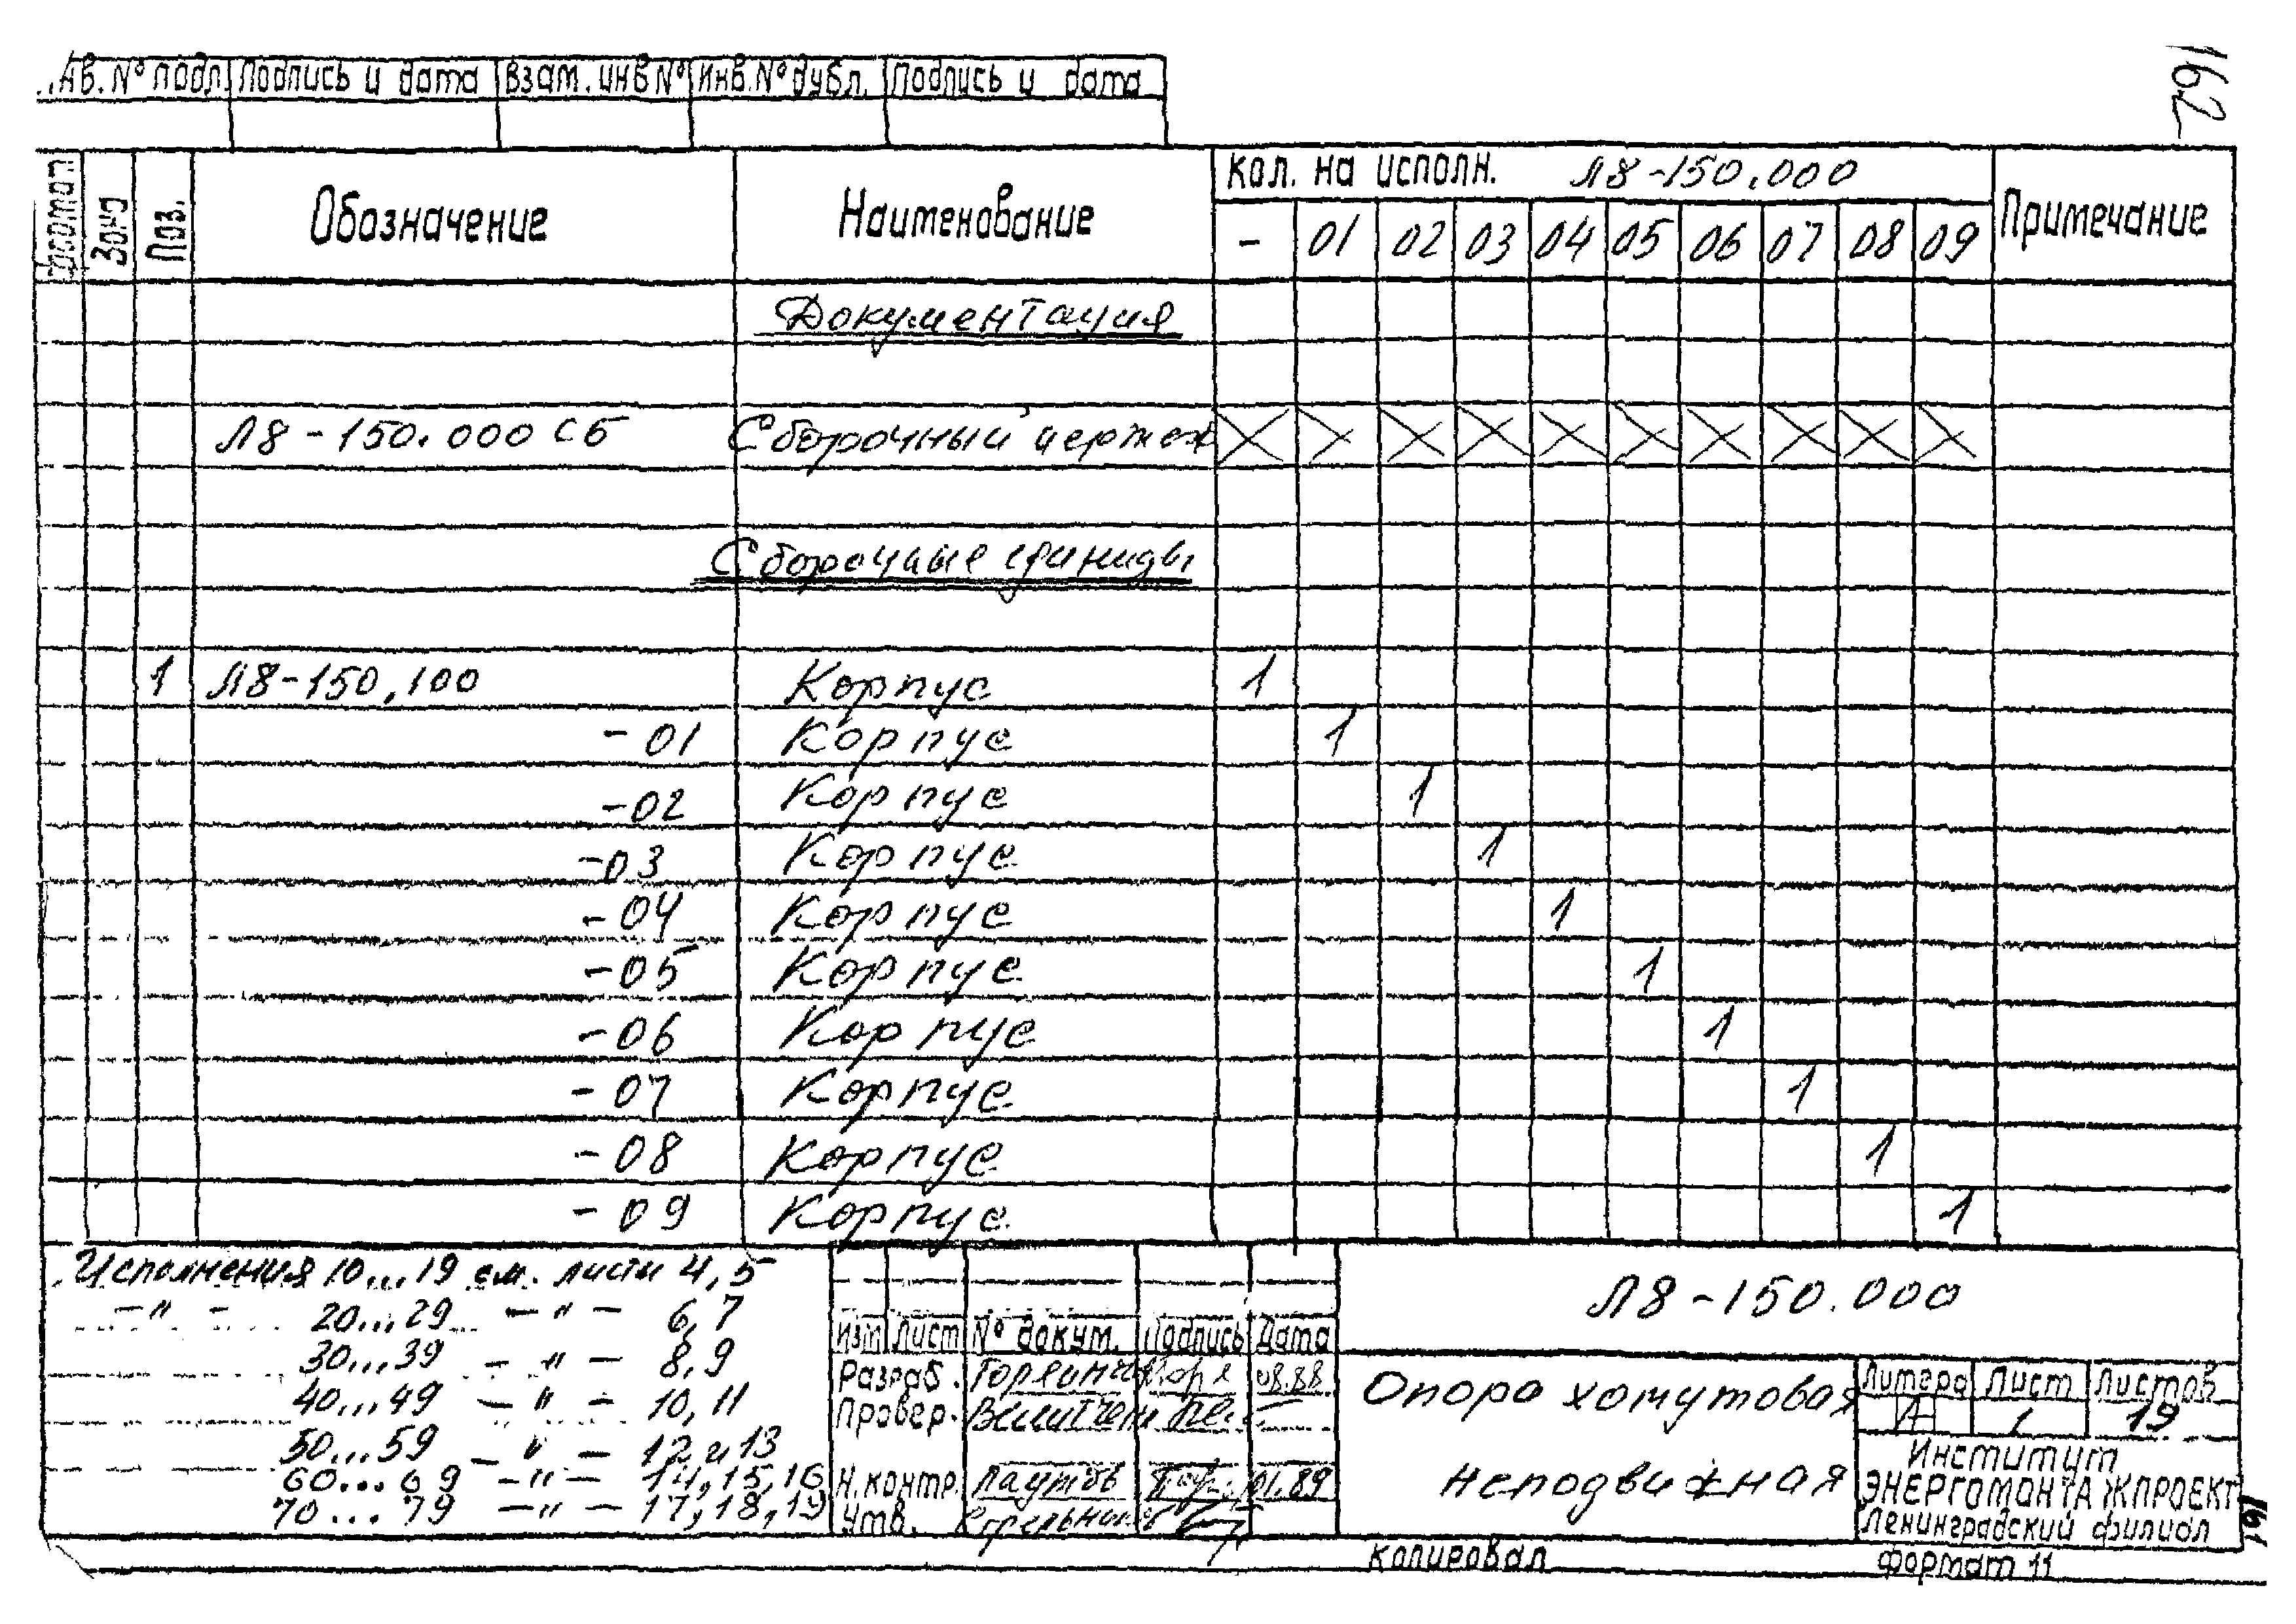 Инв. № подл. Подпись и дата Взам. инв № Инв. № дубл. Подпись и дата
162
Формат Зона Поз. Обозначение Наименование Кол. на исполн. Л8-150.000 Примечание
- 01 02 03 04 05 06 07 08 09
Документация
Л8-150.000 СБ Сборочный чертеж X X X X X X X X X X
Сборочные единицы
1 Л8-150.100 Корпус 1
-01 Корпус 1
-02 Корпус 1
-03 Корпус 1
-04 Корпус 1
-05 Корпус 1
-06 Корпус 1
-07 Корпус 1
-08 Корпус 1
-09 Корпус 1
Исполнения 10...19 см. листы 4,5
-"- 20...29 -"- 6,7
30...39 -"- 8,9
40...49 -"- 10,11
50...59 -"- 12 и 13
60...69 -"- 14,15,16
70...79 -"- 17,18,19
Изм Лист № докум. Подпись Дата
Разраб. 08.88
Провер.
Н.контр. Лаутов 01.89
Утв.
Л8-150.000
Опора хомутовая
неподвижная
Литера Лист Листов
А 1 19
Институт
ЭНЕРГОМОНТАЖПРОЕКТ
Ленинградский филиал
161
Копировал Формат 11